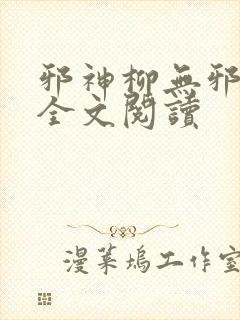 邪神柳無邪
全文閱讀
漫菓塢工作室